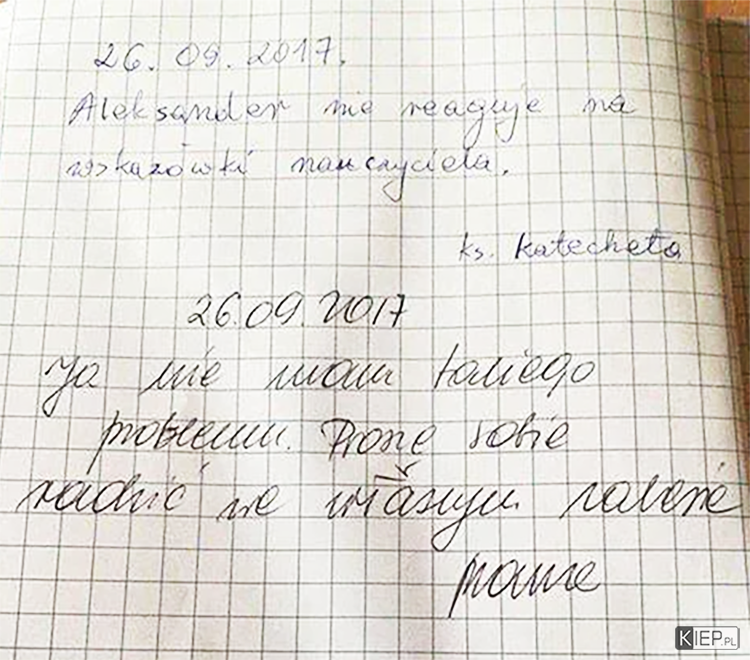 26. 09. 2017.
Aleksander nie reaguje na
wskazówki nauczyciela.
ks. katecheta
26.09.2017
Ja nie mam takiego
problemu. Proszę sobie
radzić we własnym zakresie
mama
KIEP.PL